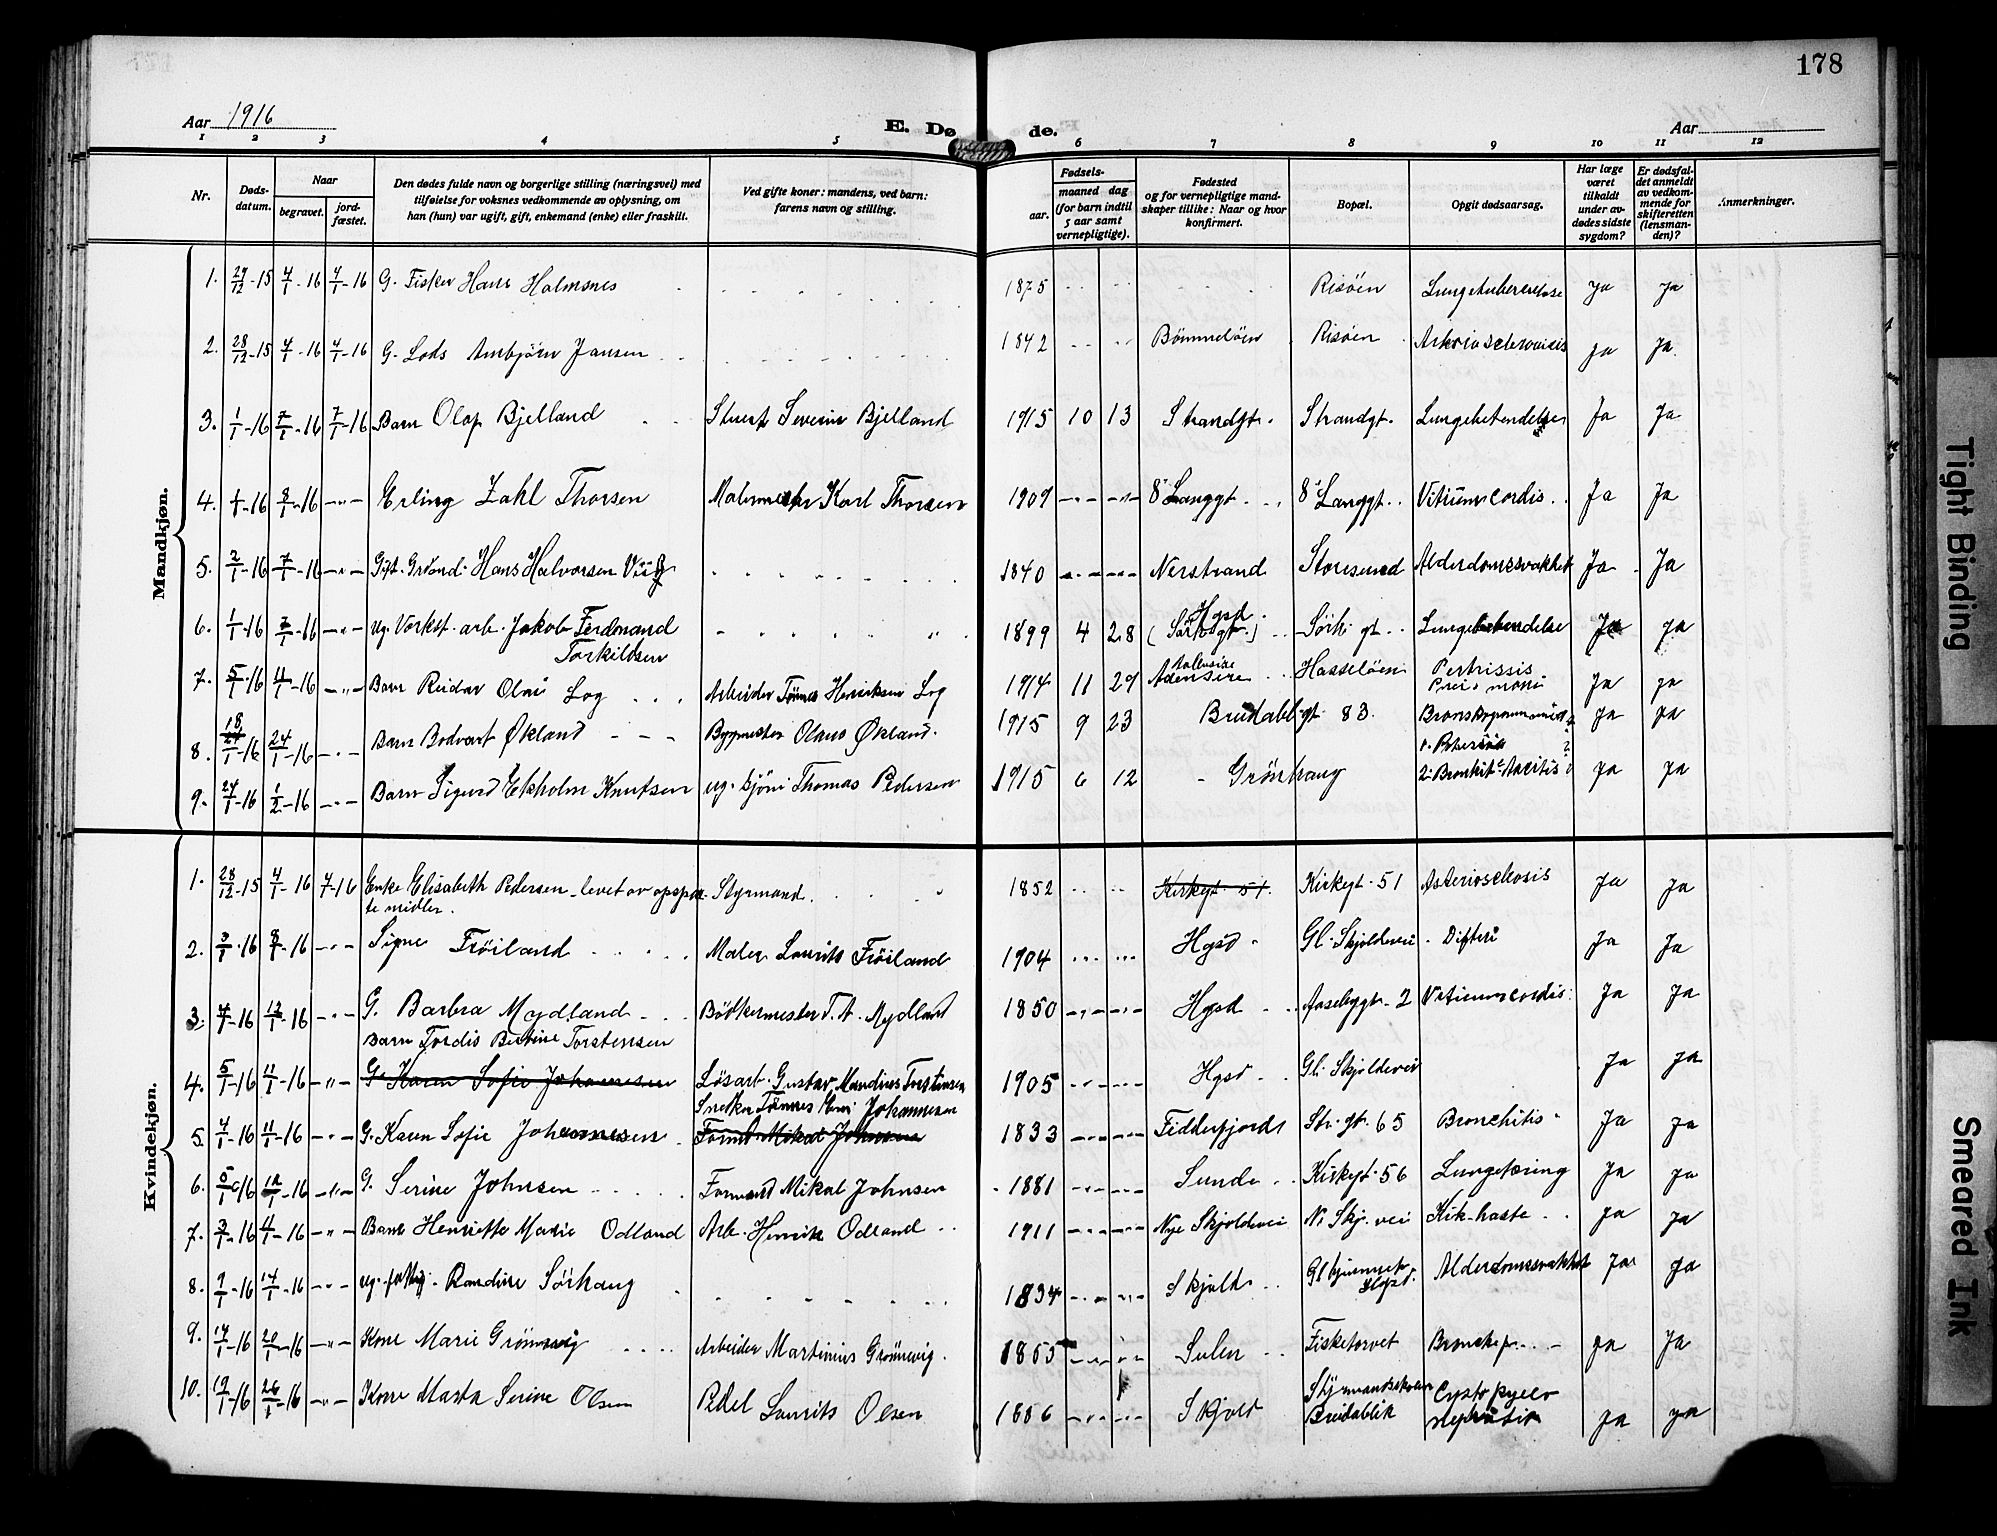 178
Aar 1916
E. Døde.
Aar
1 2 3 4 5 6 7 8 9 10 11 12
Nr.
Døds-datum.
Naar
begravet.
jord-fæstet.
Den dødes fulde navn og borgerlige stilling (næringsvei) med tilføielse for voksnes vedkommende av oplysning, om han (hun) var ugift, gift, enkemand (enke) eller fraskilt.
Ved gifte koner: mandens, ved barn: farens navn og stilling.
Fødsels-
aar.
maaned dag
(for barn indtil 5 aar samt vernepligtige).
Fødested
og for vernepligtige mandskaper tillike: Naar og hvor konfirmert.
Bopæl.
Opgit dødsaarsag.
Har læge været tilkaldt under avdødes sidste sygdom?
Er dødsfaldet anmeldt av vedkommende for skifteretten (lensmanden)?
Anmerkninger.
Mandkjøn.
1. 29/12-15 4/1-16 4/1-16 G. Fisker Hans Holmsnes 1875 Risöen Lungetuberculose Ja Ja
2. 28/12-15 4/1-16 4/1-16 G. Lods Ambjörn Jansen 1842 Bömmelöen Risöen Ja Ja
3. 1/1-16 7/1-16 7/1-16 Barn Olaf Bjelland Stuert Severin Bjelland 1915 10 13 Strandgt. Strandgt. Lungebetendelse Ja Ja
4. 8/1-16 Erling Zahl Thorsen Malermester Karl Thorsen 1909 Langgt. Langgt. Vitium cordis Ja Ja
5. 2/1-16 7/1-16 Gift. Hans Halvorsen 1840 Nerstrand Storesund Alderdomssvakhet Ja Ja
6. 1/1-16 7/1-16 ug. Verkst. arb. Jakob Ferdinand Torkildsen 1899 4 28 Hgsd. Sörh. gt. Lungebetendelse Ja Ja
7. 5/1-16 4/1-16 Barn Reidar Olai Log Arbeider Tönnes Henriksen Log 1914 11 29 Hasselöen Ja Ja
8. 18/1-16 24/1-16 Barn Bodvart Økland Bygmester Olaus Økland. 1915 9 23 Breidablikgt. 83. Ja Ja
9. 24/1-16 1/2-16 Barn Sigurd Ekholm Knutsen ug. sjöm. Thomas Pedersen 1915 6 12 Grönhaug Ja Ja
Kvindekjøn.
1. 28/12-15 4/1-16 4/1-16 Enke Elisabeth Pedersen levet av opsparte midler. Styrmand. 1852 Kirkegt. 51. Kirkegt. 51 Ja Ja
2. 3/1-16 8/1-16 Signe Fröiland Maler Laurits Fröiland 1904 Hgsd Gl. Skjoldevei Difteri Ja Ja
3. 4/1-16 12/1-16 G. Barbra Mydland Bödkermester T. A. Mydland 1850 Hgsd Aasebygt. 2 Vitium cordis. Ja Ja
Barn Tordis Bertine Torstensen
4. 5/1-16 11/1-16 G. Karen Sofie Johannesen Lösarb. Gustav Mandius Torstensen 1905 Hgsd Gl. Skjoldevei Ja Ja
Snedker Tönnes Johannesen
5. 4/1-16 11/1-16 G. Karen Sofie Johannesen Formd. Mikal Johnsen 1833 Feddefjord Str. gt. 65 Bronchitis Ja Ja
6. 5/1-16 12/1-16 G. Serine Johnsen Formand Mikal Johnsen 1881 Sunde Kirkegt. 56 Lungetæring Ja Ja
7. 3/1-16 4/1-16 Barn Henriette Marie Odland Arb. Henrik Odland 1911 Nye Skjoldevei N. Skj. vei Kik-hoste Ja Ja
8. 9/1-16 14/1-16 ug. fattig. Randine Sörhaug 1834 Skjold Gl.hjemmet Hgsd. Alderdomssvakhet Ja Ja
9. 17/1-16 20/1-16 Kone Marie Grönnevig Arbeider Martinius Grönnevig. 1855 Sulen Fisketorvet Ja Ja
10. 19/1-16 26/1-16 Kone Marta Serine Olsen Pedel Laurits Olsen 1886 Skjold Styrmandsskolen Breidablik Ja Ja
Tight Binding
Smeared Ink